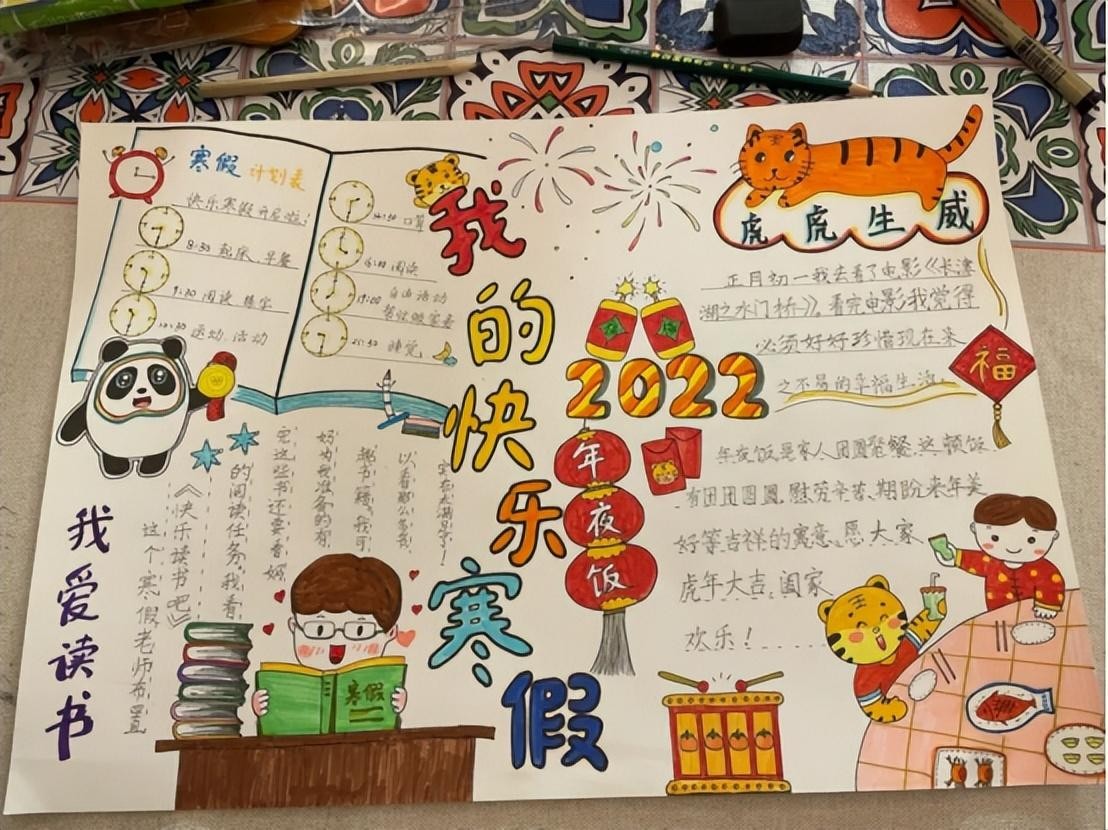 寒假 计划表
快乐寒假开启啦!
8:30 起床、早餐
9:30 阅读 练字
10:30 运动、活动
口算
阅读
19:00 自由活动
睡觉
我的快乐寒假
虎虎生威
正月初一我去看了电影《长津
湖之水门桥》。看完电影我觉得
必须好好珍惜现在来
之不易的幸福生活
福
2022
年夜饭
年夜饭是家人团圆聚餐,这顿饭
有团团圆圆,慰劳辛苦,期盼来年美
好等吉祥的寓意,愿大家
虎年大吉,阖家
欢乐!
我爱读书
这个寒假老师布置
《快乐读书吧》
的阅读任务。我看
完这些书还要看妈
妈为我准备的有
趣书籍。我可
以看那么多书,
实在太满足了!
寒假